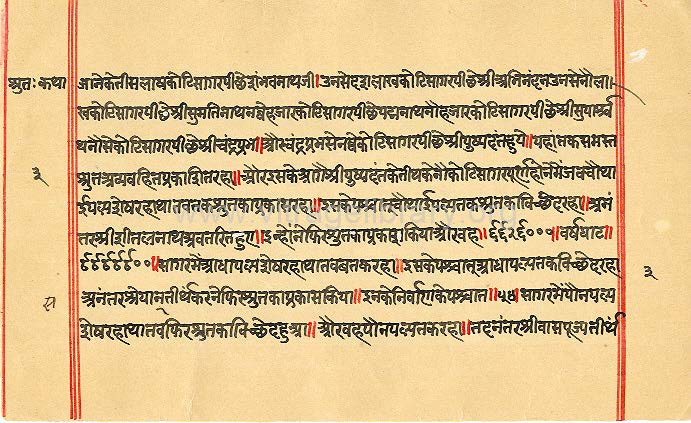 श्रुतः कथा
जानेके तीसलाखकोटिसागरपीछे संभवनाथजी॥उनसे दशलाखकोटिसागरपीछे श्रीअभिनंदन उनसे नौला
खकोटिसागरपीछे श्रीसुमतिनाथ नब्बेहजारकोटिसागरपीछे पद्मनाथ नौहजारकोटिसागरपीछे श्रीसुपार्श्व
थ नौसेकोटिसागरपीछे श्रीचंद्रप्रभ॥और चंद्रप्रभसे नब्बेकोटिसागरपीछे श्रीपुष्पदंत हुये॥यहांतक समस्त
श्रुत अव्यवहित प्रकाशित रहा॥और इसके आगे श्रीपुष्पदंतके तीर्थके नौकोटिसागर पूर्ण होनेमें जब चौथा
ई पल्य शेष रहा था तबतक श्रुतका प्रकास रहा॥इसके पश्चात् चौथाई पल्यतक श्रुतका विच्छेद रहा॥अनं
तर श्रीशीतलनाथ अवतरित हुए॥इन्होंने फिर श्रुतका प्रकाश किया और वह॥६६२६०००॥वर्ष घाट॥
सागरमें आधा पल्य शेष रहा था तबतक रहा॥इसके पश्चात् आधा पल्यतक विच्छेद रहा
अनंतर श्रेयांसतीर्थंकरने फिर श्रुतका प्रकास किया॥इनके निर्वाणके पश्चात॥५४॥सागरमें पौन पल्य
शेष रहा था तब फिर श्रुतका विच्छेद हुआ॥और वह पौन पल्यतक रहा॥तदनंतर श्रीवासपूज्यतीर्थ
३
३
www.vitragelibrary.org